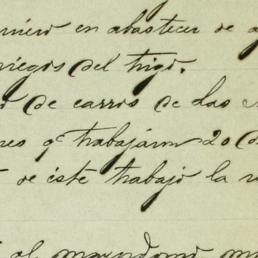 en abastecer de
riegos del trigo.
de carros de dos
qe trabajárn 20
de este trabajo la
al mayordomo